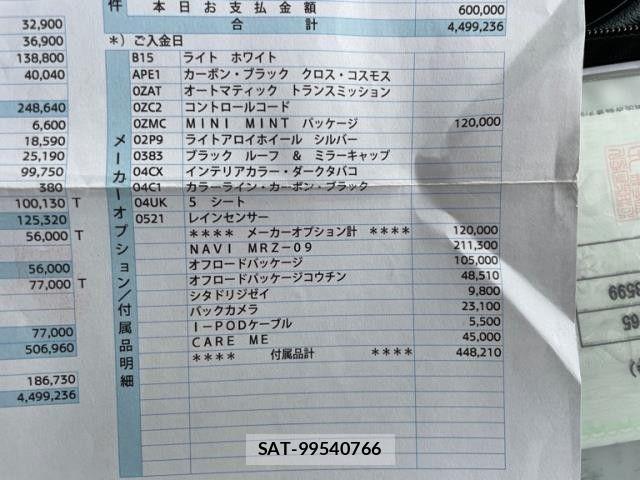 件
本日お支払金額 600,000
合計 4,499,236
*）ご入金日
32,900
36,900
138,800
40,040
248,640
6,600
18,590
25,190
99,750
380
100,130 T
125,320
56,000 T
56,000
77,000 T
77,000
506,960
186,730
4,499,236
メーカーオプション/付属品明細
B15 ライト ホワイト
APE1 カーボン・ブラック クロス・コスモス
0ZAT オートマティック トランスミッション
0ZC2 コントロールコード
0ZMC MINI MINT パッケージ 120,000
02P9 ライトアロイホイール シルバー
0383 ブラック ルーフ & ミラーキャップ
04CX インテリアカラー・ダークタバコ
04C1 カラーライン・カーボン・ブラック
04UK 5 シート
0521 レインセンサー
**** メーカーオプション計 **** 120,000
NAVI MRZ-09 211,300
オフロードパッケージ 105,000
オフロードパッケージコウチン 48,510
シタドリジゼイ 9,800
バックカメラ 23,100
I-PODケーブル 5,500
CARE ME 45,000
**** 付属品計 **** 448,210
8599
65
SAT-99540766